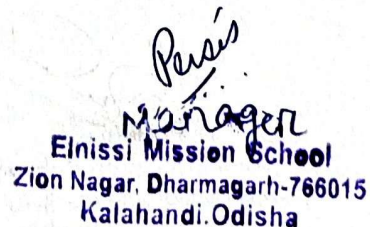 Persis
Manager
Elnissi Mission School
Zion Nagar, Dharmagarh-766015
Kalahandi.Odisha